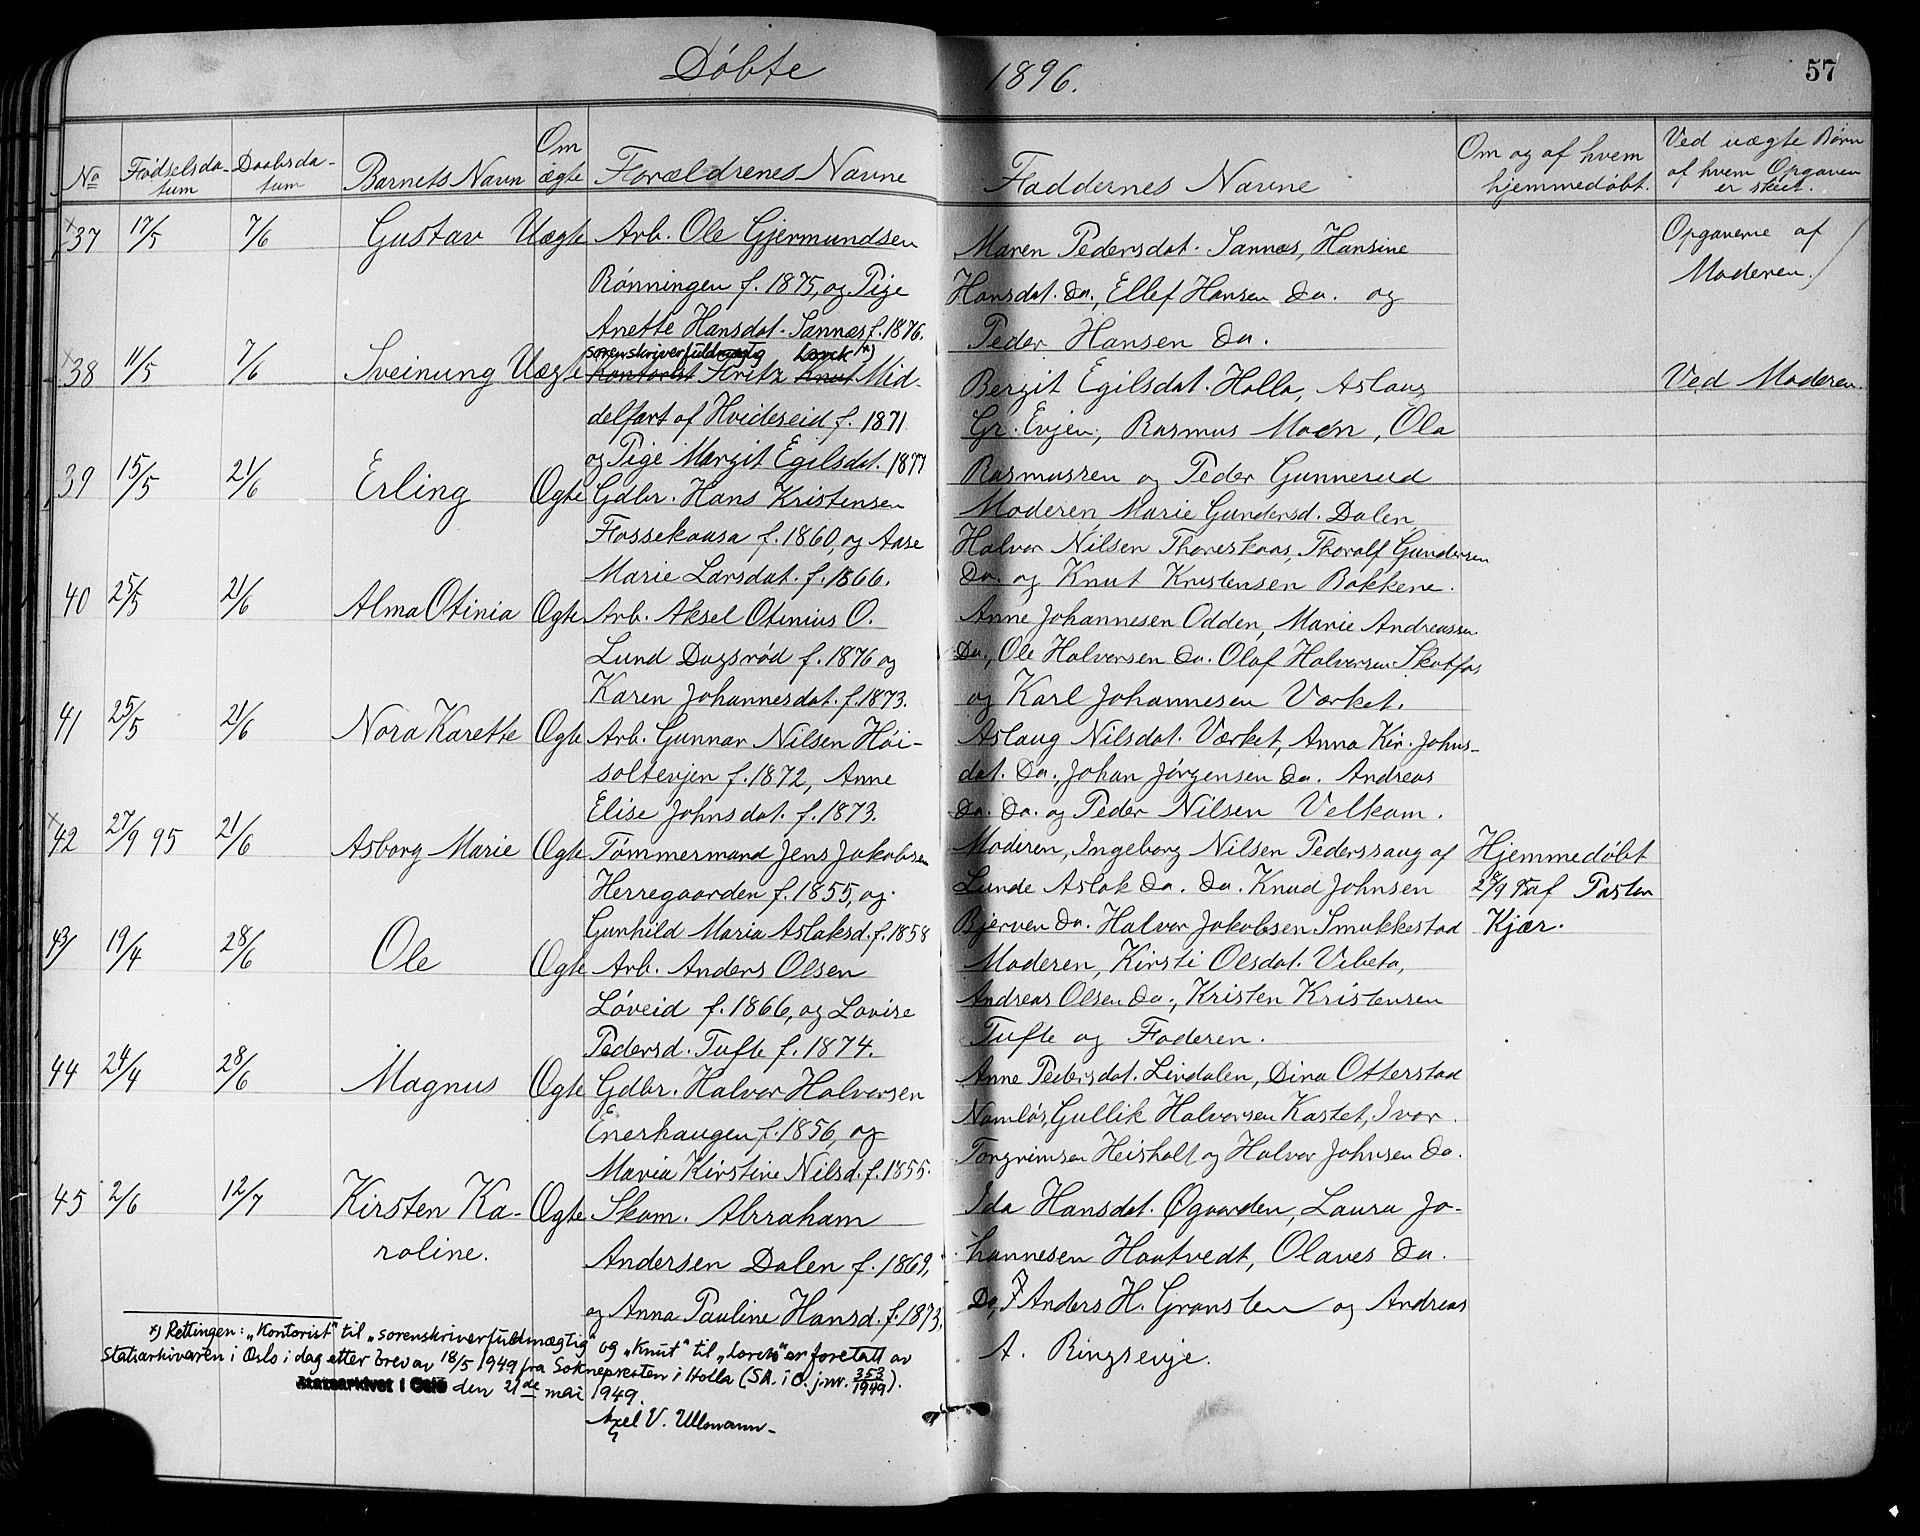 Døbte 1896. 57
No Fødselsda-tum Daabsda-tum Barnets Navn Om ægte Forældrenes Navne Faddernes Navne Om og af hvem hjemmedøbt. Ved uægte Børn af hvem Opgaven er skeet.
37 17/5 7/6 Gustav Uægte Arb. Ole Gjermundsen Maren Pedersdat. Sannæs, Hansine Opgaverne af
Rønningen f. 1875, og Pige Hansdat. Do., Ellef Hansen Do. og Moderen.
Anette Hansdat. Sannæs f. 1876. Peder Hansen Do.
sorenskriverfuldmægtig Lorck *)
38 11/5 7/6 Sveinung Uægte Kontorist Fritz Knut Mid- Bergit Egilsdat. Holla, Aslaug Ved Moderen.
delfart af Hvideseid f. 1871 Gr. Evjen, Rasmus Moen, Ola
og Pige Margit Egilsdat. 1877 Rasmussen og Peder Gunnerud
39 15/5 21/6 Erling Ægte Gdbr. Hans Kristensen Moderen Marie Gundersd. Dalen,
Fossekaasa f. 1860, og Aase Halvor Nilsen Thoreskaas, Thoralf Gundersen
Marie Larsdat. f. 1866. Do. og Knut Kristensen Bakkene.
40 25/5 21/6 Alma Otinia Ægte Arb. Aksel Otinius O. Anne Johannesen Odden, Marie Andreassen
Lund Dagsrød f. 1876 og Do., Ole Halvorsen Do. Olaf Halvorsen Skotfos
Karen Johannesdat. f. 1873. og Karl Johannesen Værket.
41 25/5 21/6 Nora Karette Ægte Arb. Gunnar Nilsen Høi- Aslaug Nilsdat. Værket, Anna Kir. Johns-
soltevjen f. 1872, Anne dat. Do., Johan Jørgensen Do. Andreas
Elise Johnsdat. f. 1873. Do. Do. og Peder Nilsen Velkam.
42 27/9 95 21/6 Asborg Marie Ægte Tømmermand Jens Jakobsen Moderen, Ingeborg Nilsen Pederssaug af Hjemmedøbt
Herregaarden f. 1855, og Lunde Aslak Do. Do. Knud Johnsen af Pastor
Gunhild Maria Aslaksd. f. 1858 Bjerven Do. Halvor Jakobsen Smukkestad Kjær.
43 19/4 28/6 Ole Ægte Arb. Anders Olsen Moderen, Kirsti Olsdat. Vibeto,
Løveid f. 1866, og Lovise Andreas Olsen Do., Kristen Kristensen
Pedersd. Tufte f. 1874. Tufte og Faderen.
44 24/4 28/6 Magnus Ægte Gdbr. Halvor Halvorsen Anne Pedersdat. Lindalen, Dina Otterstad
Enerhaugen f. 1856, og Namløs, Gullik Halvorsen Kastet, Ivar
Maria Kirstine Nilsd. f. 1855. Torgrimsen Heisholt og Halvor Johnsen Do.
45 2/6 12/7 Kirsten Ka- Ægte Skom. Abraham Ida Hansdat. Øgaarden, Laura Jo-
roline. Andersen Dalen f. 1869, hannesen Haatvedt, Olaves Do.
og Anna Pauline Hansd. f. 1873. Do, Anders H. Gransten og Andreas
A. Ringsevje.
*) Rettingen: „Kontorist" til „sorenskriverfuldmægtig" og „Knut" til „Lorck" er foretatt av
Statsarkivaren i Oslo i dag etter brev av 18/5 1949 fra Soknepresten i Holla (SA. i O. j.nr. 353/1949).
Statsarkivet i Oslo den 21de mai 1949.
Axel V. Ullmann